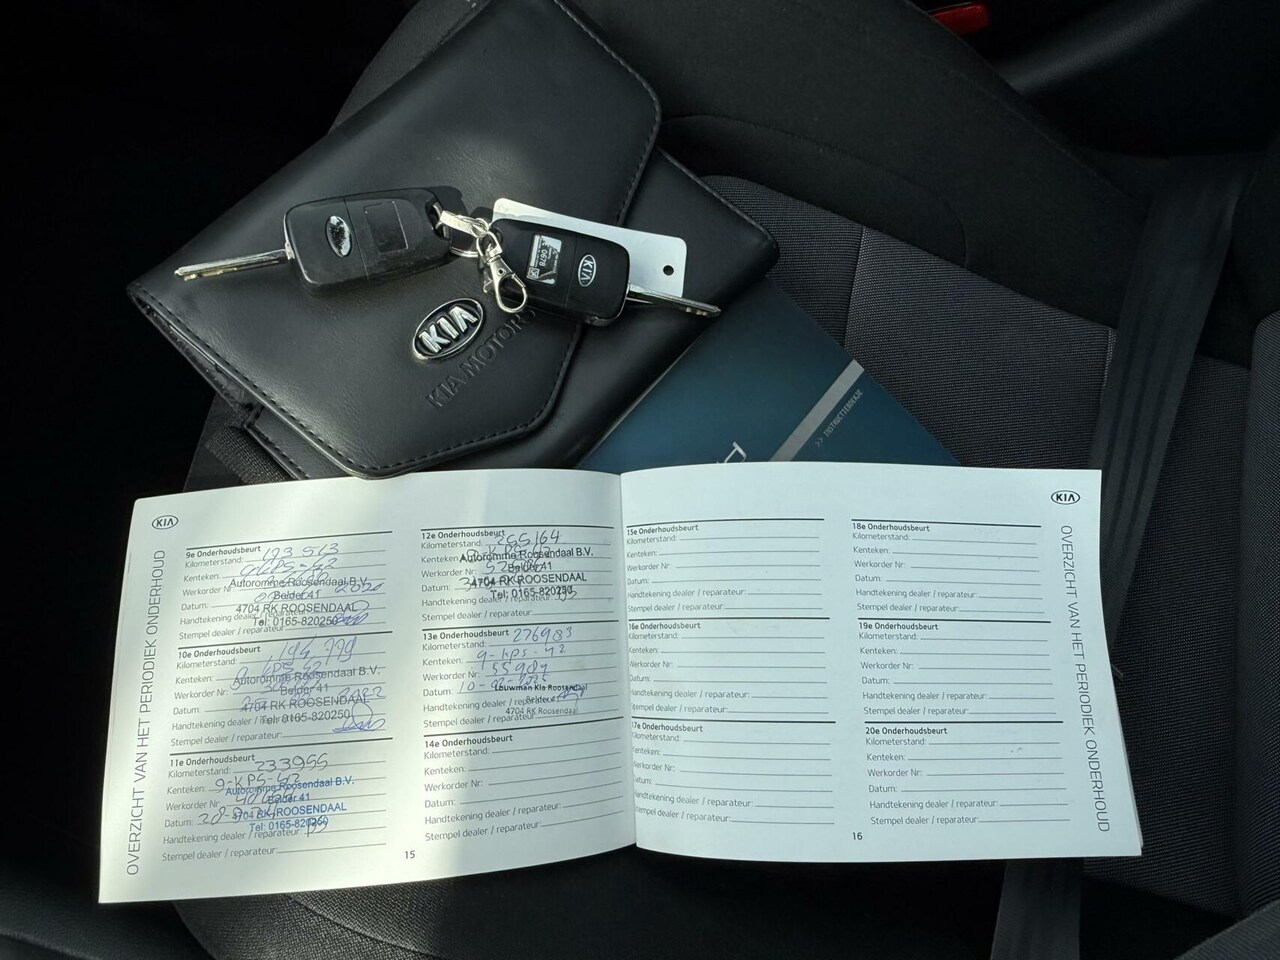 KIA
KIA
KIA MOTORS
>> INSTRUCTIEBOEKJE
KIA
OVERZICHT VAN HET PERIODIEK ONDERHOUD
9e Onderhoudsbeurt
Kilometerstand: 193 513
Kenteken: 9-KPS-42
Werkorder Nr:
Datum: 2020
Handtekening dealer / reparateur:
Stempel dealer / reparateur:
Autoromme Roosendaal B.V.
Belder 41
4704 RK ROOSENDAAL
Tel: 0165-820250
10e Onderhoudsbeurt
Kilometerstand:
Kenteken: KPS
Werkorder Nr:
Datum:
Handtekening dealer / reparateur:
Stempel dealer / reparateur:
Autoromme Roosendaal B.V.
Belder 41
4704 RK ROOSENDAAL
Tel: 0165-820250
11e Onderhoudsbeurt
Kilometerstand: 233955
Kenteken: 9-KPS-42
Werkorder Nr:
Datum:
Handtekening dealer / reparateur:
Stempel dealer / reparateur:
Autoromme Roosendaal B.V.
Belder 41
4704 RK ROOSENDAAL
Tel: 0165-820250
12e Onderhoudsbeurt
Kilometerstand: 255164
Kenteken:
Werkorder Nr:
Datum:
Handtekening dealer / reparateur:
Stempel dealer / reparateur:
Autoromme Roosendaal B.V.
Belder 41
4704 RK ROOSENDAAL
Tel: 0165-820250
13e Onderhoudsbeurt
Kilometerstand: 276983
Kenteken: 9-KPS-42
Werkorder Nr:
Datum:
Handtekening dealer / reparateur:
Stempel dealer / reparateur:
Louwman Kia Roosendaal
Belder
4704 RK Roosendaal
14e Onderhoudsbeurt
Kilometerstand:
Kenteken:
Werkorder Nr:
Datum:
Handtekening dealer / reparateur:
Stempel dealer / reparateur:
15
15e Onderhoudsbeurt
Kilometerstand:
Kenteken:
Werkorder Nr:
Datum:
Handtekening dealer / reparateur:
Stempel dealer / reparateur:
16e Onderhoudsbeurt
Kilometerstand:
Kenteken:
Werkorder Nr:
Datum:
Handtekening dealer / reparateur:
Stempel dealer / reparateur:
17e Onderhoudsbeurt
Kilometerstand:
Kenteken:
Werkorder Nr:
Datum:
Handtekening dealer / reparateur:
Stempel dealer / reparateur:
18e Onderhoudsbeurt
Kilometerstand:
Kenteken:
Werkorder Nr:
Datum:
Handtekening dealer / reparateur:
Stempel dealer / reparateur:
19e Onderhoudsbeurt
Kilometerstand:
Kenteken:
Werkorder Nr:
Datum:
Handtekening dealer / reparateur:
Stempel dealer / reparateur:
20e Onderhoudsbeurt
Kilometerstand:
Kenteken:
Werkorder Nr:
Datum:
Handtekening dealer / reparateur:
Stempel dealer / reparateur:
16
KIA
OVERZICHT VAN HET PERIODIEK ONDERHOUD